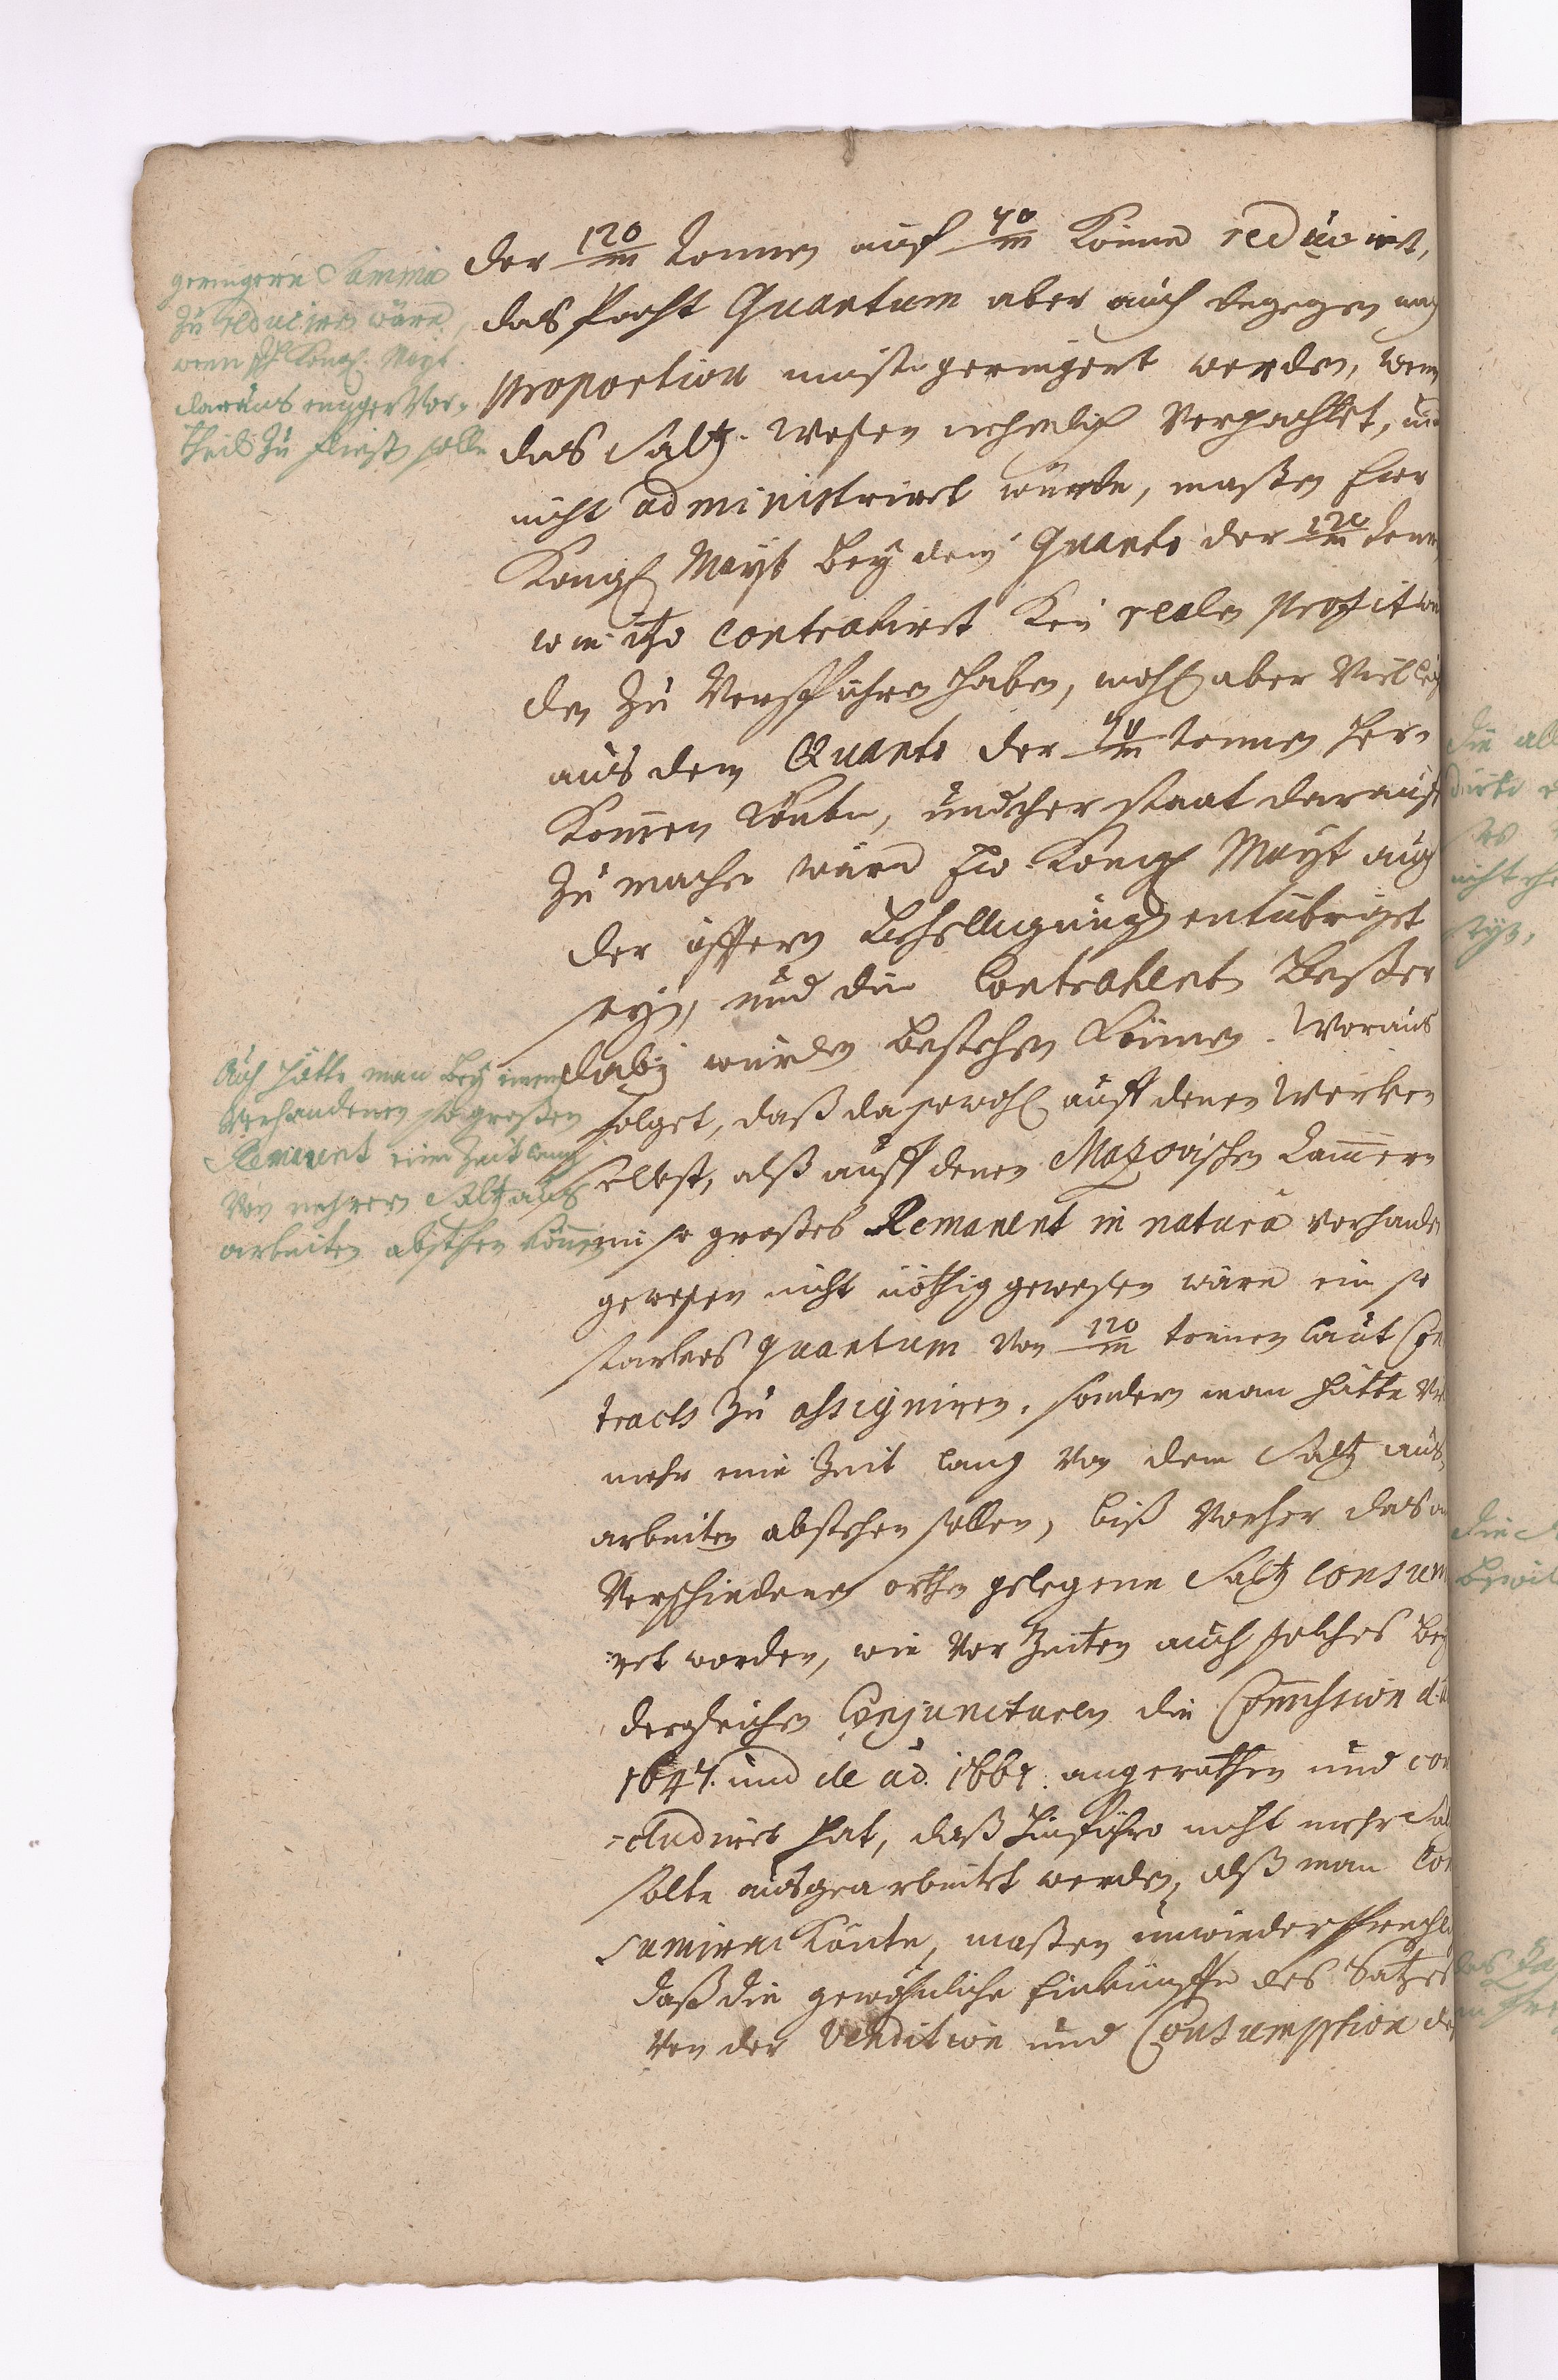 geringere Summa
zu reduciren wäre,
wenn Ihr Königl. Mayt.
daraus einiger Vor-
theil zu fließen solle
der 120/m tonnen auf 40/m könne reducirt,
das Pacht Quantum aber auch dagegen nach
proportion müste geringert werden, wenn
das Saltz-Wesen nehmlich verpachtet, und
nicht administriret würde, maßen Ewr
Königl Mayt bey dem Quanto der 120/m tonnen
wie itzo contrahirt kein realen profit wer
den zu verspühren haben, wohl aber vielleicht
aus dem Quanto der 40/m tonnen her-
kommen könte, und eher staat darauf
zu machen wäre Ew. Königl Mayt auch
der öfftern Behelligung entübriget
seyn, und die Contrahenten beßer
dabey würden bestehen können. Woraus
folget, daß da sowohl auff denen Wercken
selbst, alß auff denen Mazovischen Cammern
ein so großes Remanent in natura vorhanden
gewesen nicht nöthig gewesen wäre ein so
starckes quantum von 120/m tonnen laut Con
tracts zu assigniren, sondern man hätte viel
mehr eine Zeit lang von dem Saltz aus-
arbeiten abstehen sollen, biß vorher das an
verschiedenen orthen gelegene Saltz consum
iret worden, wie vor Zeiten auch solches bey
dergleichen Conjuncturen die Commission d. a
1647. und de ao. 1661. angerathen und con
cludiret hat, daß hinführo nicht mehr Saltz
solte ausgearbeitet werden, alß man con
sumiren könte, maßen unwiedersprechl
daß die gewöhnliche Einkünffte des Saltzes
von der Vendition und Consumption des
Auch hätte man bey einem
vorhandenen so großen
Remanent eine Zeit lang
von mehrern Saltz aus
arbeiten abstehen können
die all
nicht
seyn,
die